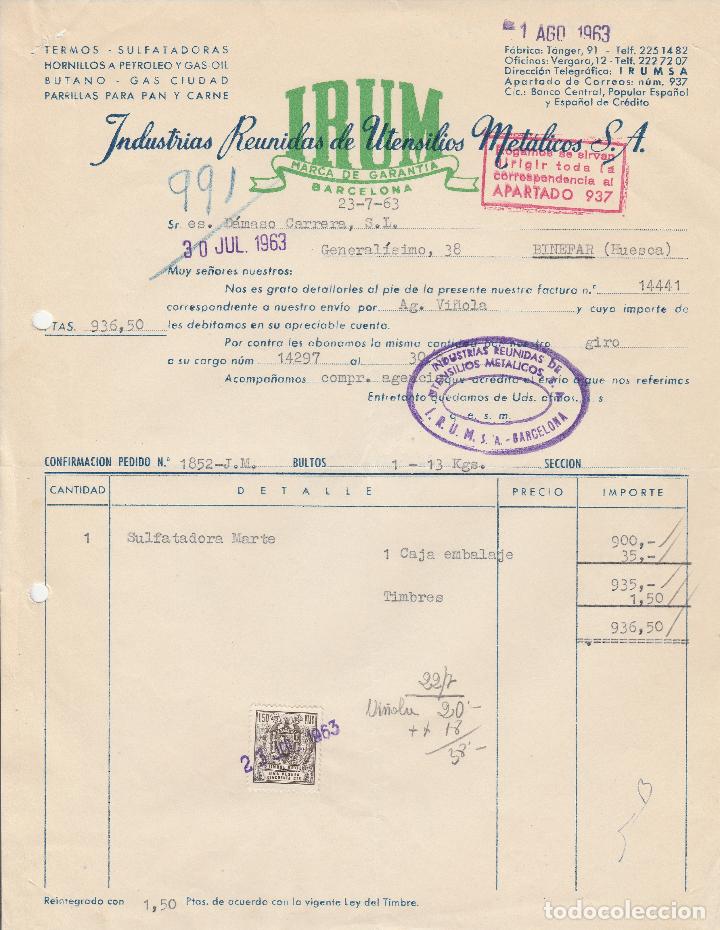 1 AGO 1963
TERMOS - SULFATADORAS
HORNILLOS A PETROLEO Y GAS-OIL
BUTANO - GAS CIUDAD
PARRILLAS PARA PAN Y CARNE
Fábrica: Tánger, 91 - Telf. 225 14 82
Oficinas: Vergara, 12 - Telf. 222 72 07
Dirección Telegráfica: IRUMSA
Apartado de Correos: núm. 937
C/c.: Banco Central, Popular Español
y Español de Crédito
IRUM
Industrias Reunidas de Utensilios Metálicos S.A.
MARCA DE GARANTIA
BARCELONA
Rogamos se sirvan
dirigir toda la
correspondencia al
APARTADO 937
991
23-7-63
Sres. Dámaso Carrera, S.L.
30 JUL. 1963
Generalísimo, 38 BINEFAR (Huesca)
Muy señores nuestros:
Nos es grato detallarles al pie de la presente nuestra factura n.º 14441
correspondiente a nuestro envío por Ag. Viñola y cuyo importe de
PTAS. 936,50 les debitamos en su apreciable cuenta.
Por contra les abonamos la misma cantidad por nuestro giro
a su cargo núm 14297 al 30
Acompañamos compr. agencia que acredita el envío a que nos referimos
Entretanto quedamos de Uds. afmos. s. s.
q. e. s. m.
INDUSTRIAS REUNIDAS DE
UTENSILIOS METALICOS, S. A.
I. R. U. M. S. A. - BARCELONA
CONFIRMACION PEDIDO N.º 1852-J.M. BULTOS 1 - 13 Kgs. SECCION
CANTIDAD DETALLE PRECIO IMPORTE
1 Sulfatadora Marte 900,-
1 Caja embalaje 35,-
935,-
Timbres 1,50
936,50
22/7
Viñola 20'-
++ 18
38'-
1'50 PTAS
23 JUL. 1963
TIMBRE MOVIL
UNA PESETA
CINCUENTA CTS
Reintegrado con 1,50 Ptas. de acuerdo con la vigente Ley del Timbre.
todocoleccion